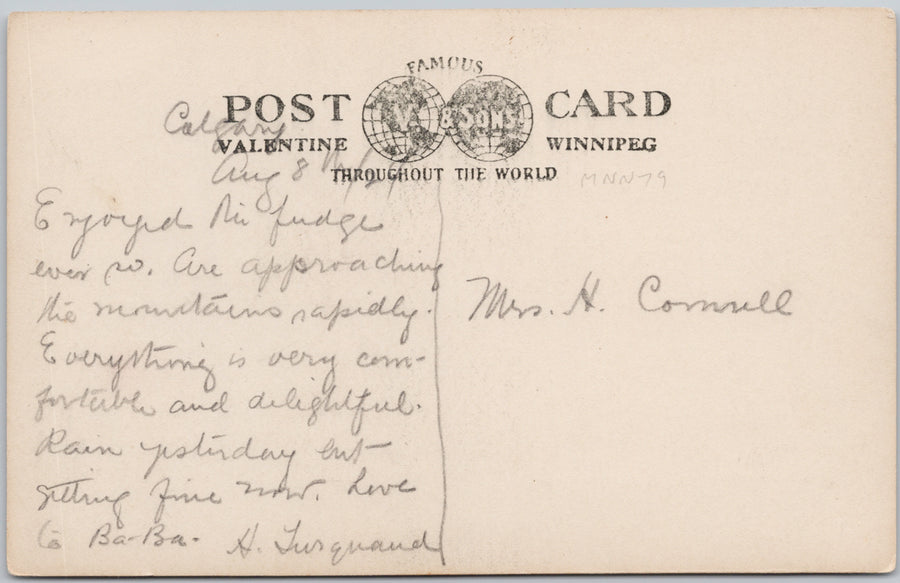 FAMOUS
POST CARD
V. & SONS
VALENTINE WINNIPEG
THROUGHOUT THE WORLD
MNN79
Calgary
Aug 8th/29
Enjoyed the fudge
ever so. Are approaching
the mountains rapidly.
Everything is very com-
fortable and delightful.
Rain yesterday but
getting fine now. Love
to Ba-Ba. H. Turquand
Mrs. H. Cornwell